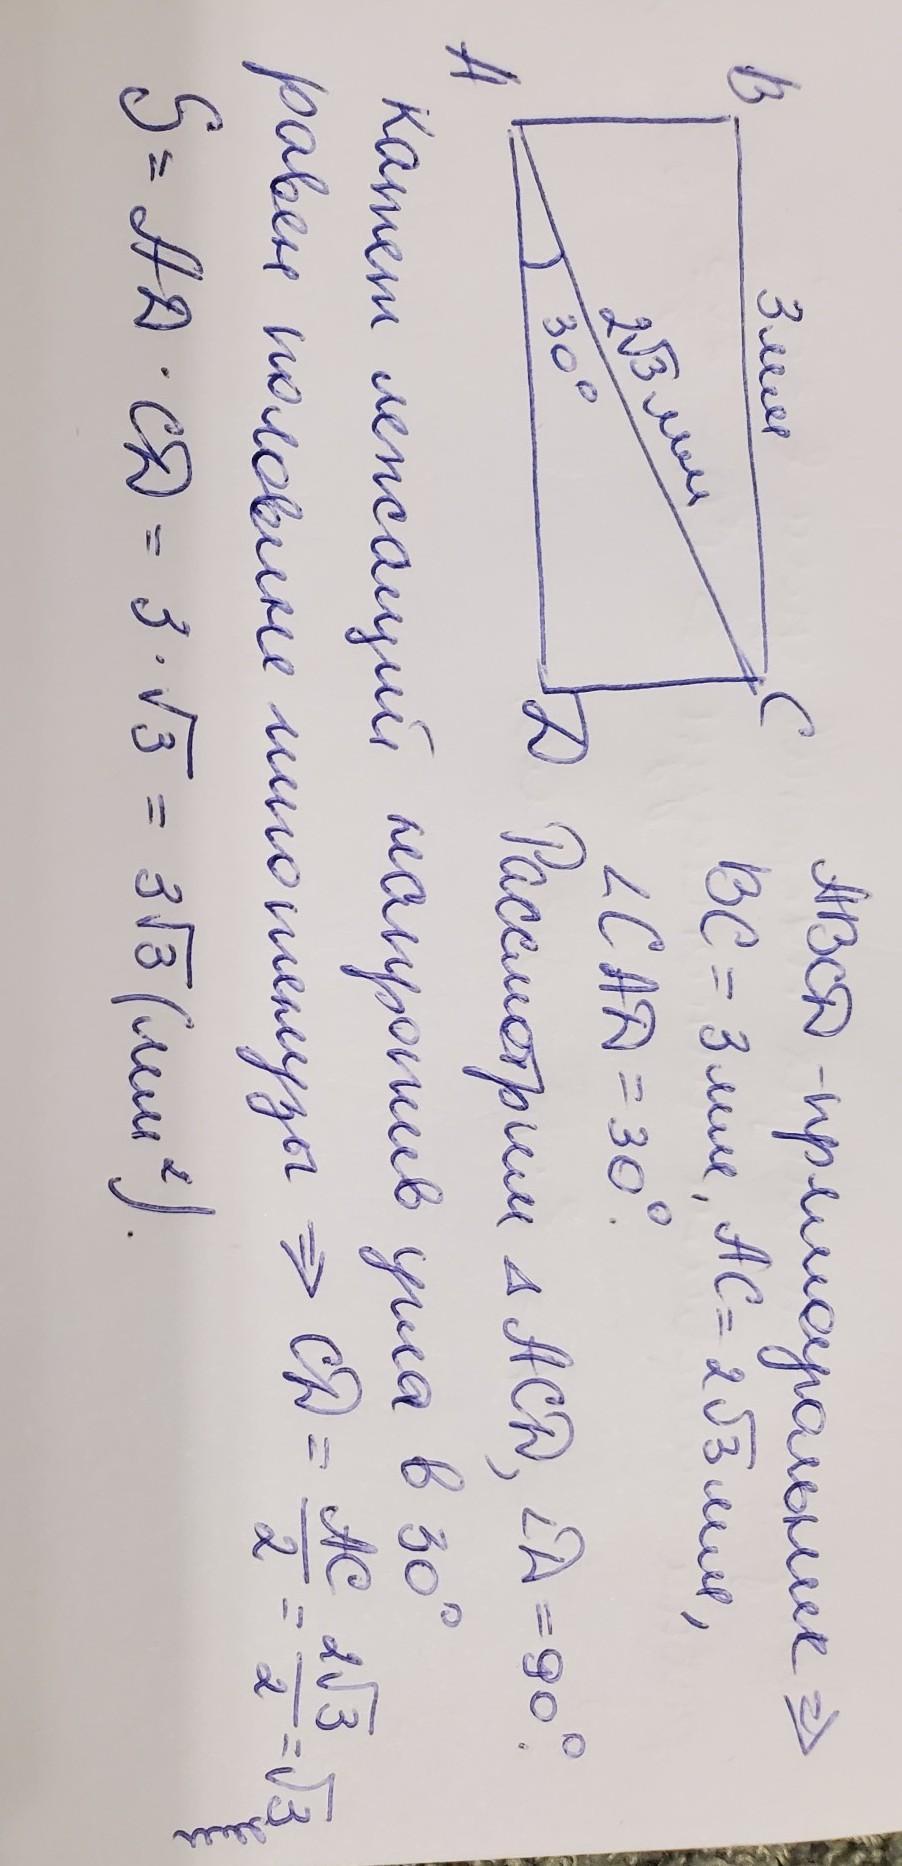 B
3мм
C
2√3 мм
30°
A
D
ABCD - прямоугольник ⇒
BC = 3мм, AC = 2√3 мм,
∠CAD = 30°.
Рассмотрим △ACD, ∠D = 90°.
Катет лежащий напротив угла в 30°
равен половине гипотенузы ⇒ CD = AC/2 = 2√3/2 = √3
мм
S = AD · CD = 3 · √3 = 3√3 (мм²).